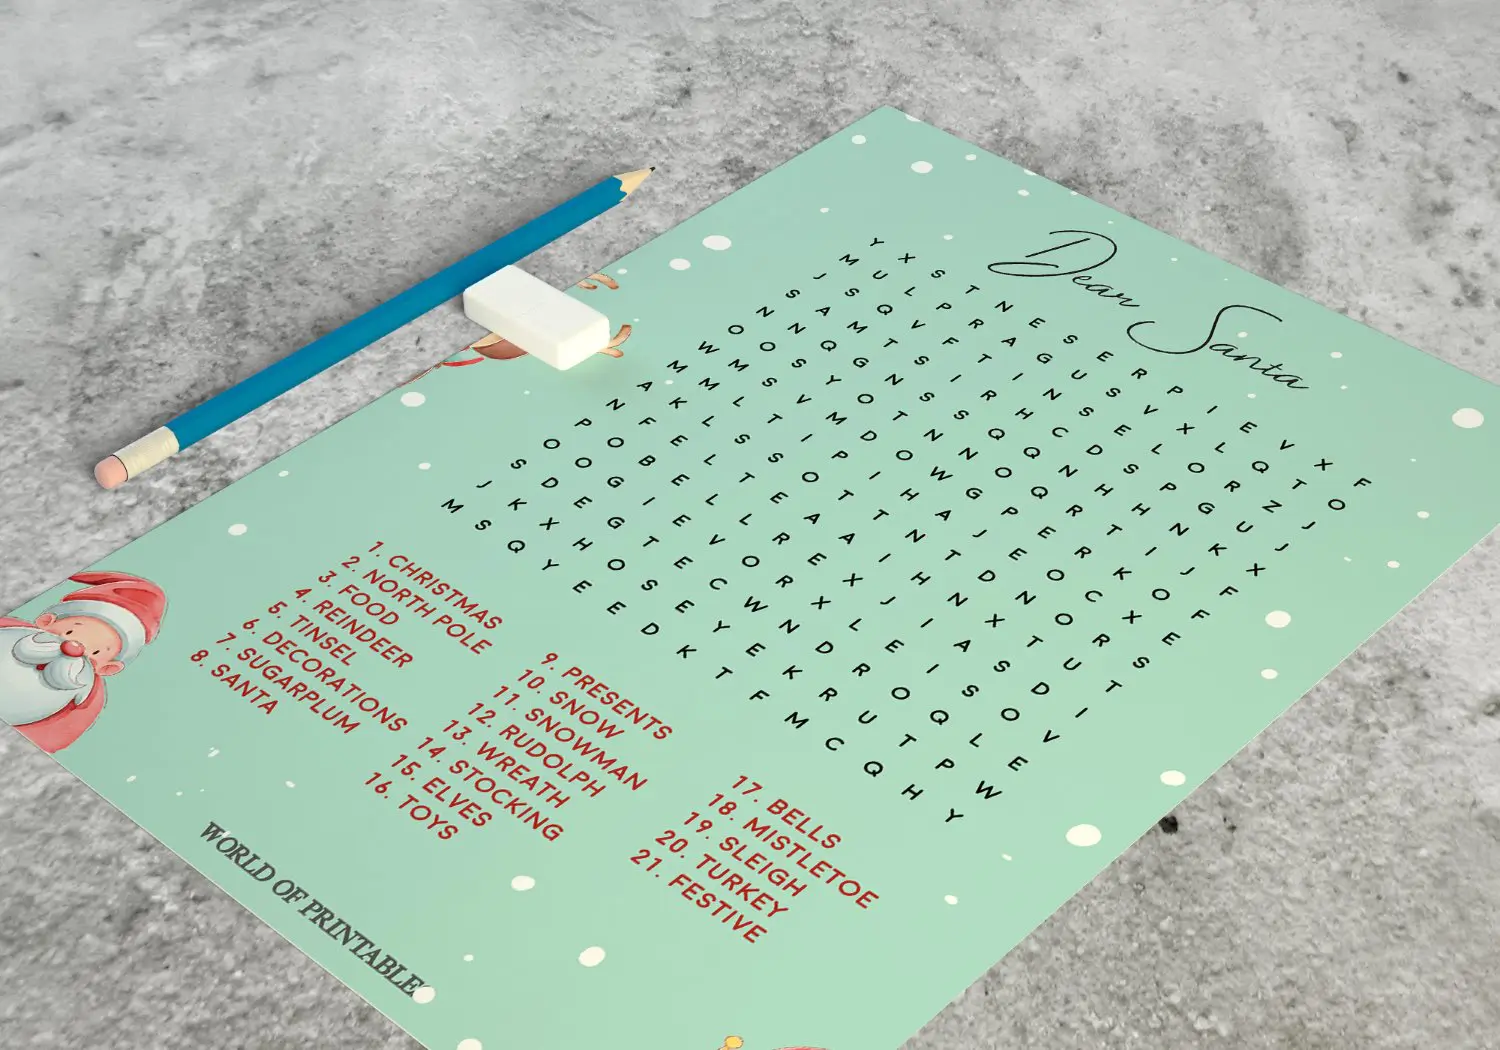 Dear Santa
Y X S T N E S E R P I E V X F
M U L P R A G U S V X L Q T O
J S Q V F T I N S E L O R Z J
S A M T S I R H C D S P G U J
N N Q G N S S Q Q N H H N K X
O O S Y O T N N O Q R T I J F
W M S V M D O W G P E R K O F
M M L T I P I H A J E O C X E
A K L S S O T T N T D N O R S
N F E L T E A A I H N X T U T
P O B E L L R E X J I A S D I
O O G I E V O R X L E I S O V
S D E G T E C W N D R O Q L E
J K X H O S E Y E K R U T P W
M S Q Y E E D K T F M C Q H Y
1. CHRISTMAS
2. NORTH POLE
3. FOOD
4. REINDEER
5. TINSEL
6. DECORATIONS
7. SUGARPLUM
8. SANTA
9. PRESENTS
10. SNOW
11. SNOWMAN
12. RUDOLPH
13. WREATH
14. STOCKING
15. ELVES
16. TOYS
17. BELLS
18. MISTLETOE
19. SLEIGH
20. TURKEY
21. FESTIVE
WORLD OF PRINTABLES